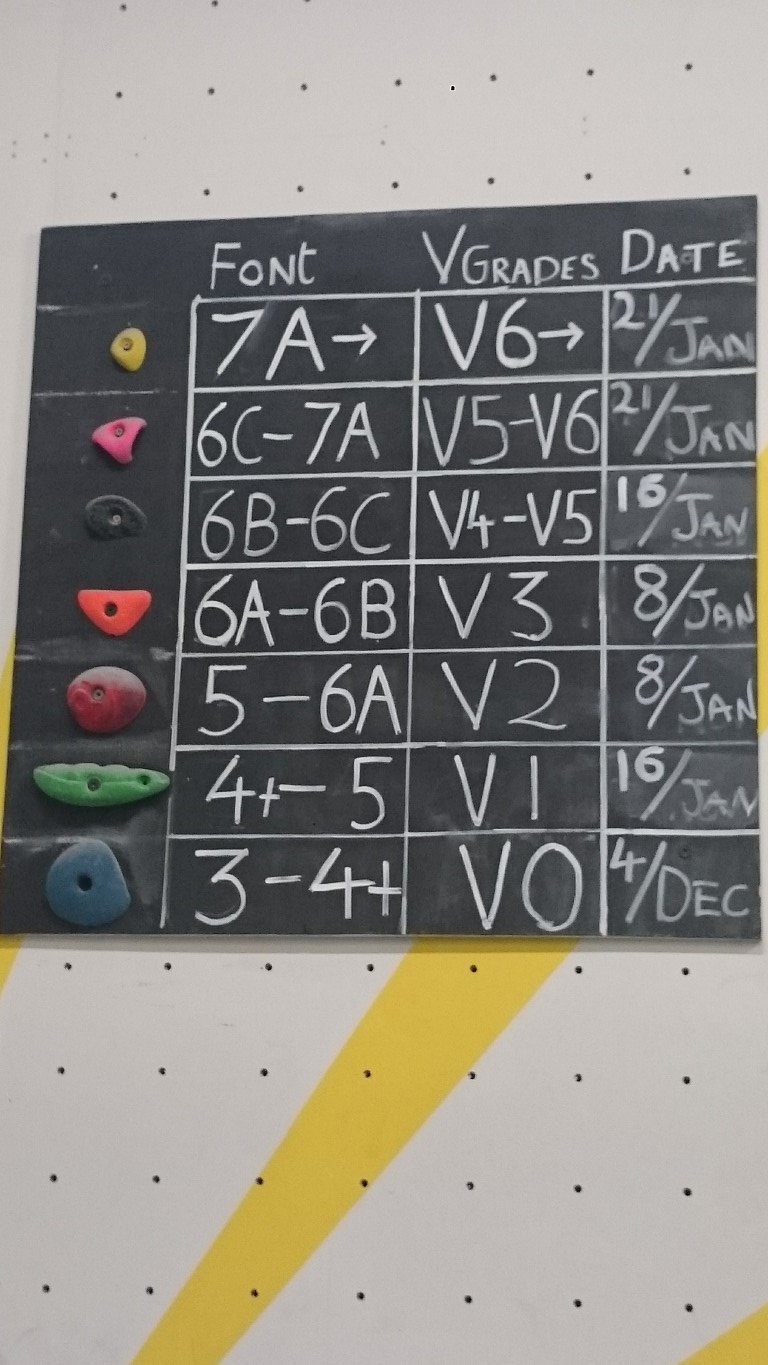 FONT VGRADES DATE
7A→ V6→ 21/JAN
6C-7A V5-V6 21/JAN
6B-6C V4-V5 16/JAN
6A-6B V3 8/JAN
5-6A V2 8/JAN
4+-5 V1 16/JAN
3-4+ V0 4/DEC